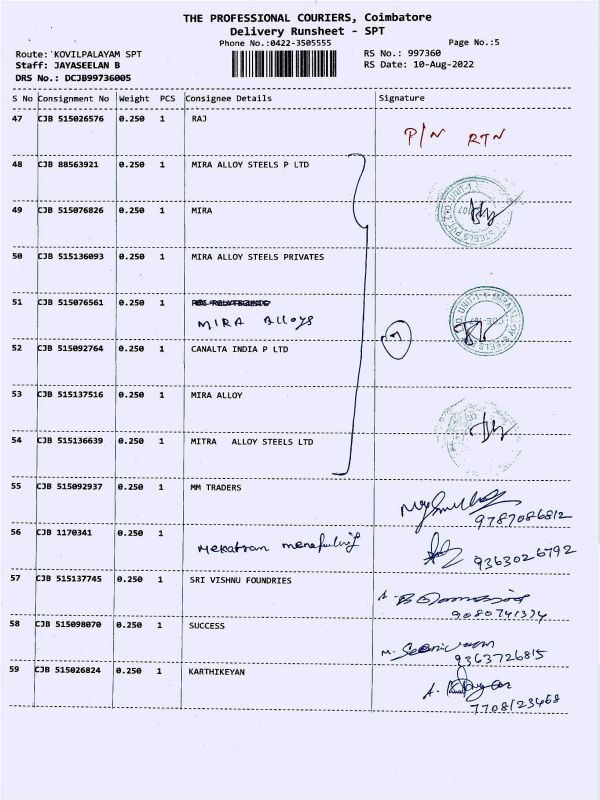 THE PROFESSIONAL COURIERS, Coimbatore
Delivery Runsheet - SPT
Phone No.:0422-3505555
Page No.:5
Route: KOVILPALAYAM SPT
RS No.: 997360
Staff: JAYASEELAN B
RS Date: 10-Aug-2022
DRS No.: DCJB99736005
S No Consignment No Weight PCS Consignee Details Signature
47 CJB 515026576 0.250 1 RAJ
P/N RTN
48 CJB 88563921 0.250 1 MIRA ALLOY STEELS P LTD
49 CJB 515076826 0.250 1 MIRA
50 CJB 515136093 0.250 1 MIRA ALLOY STEELS PRIVATES
51 CJB 515076561 0.250 1
MIRA Alloys
52 CJB 515092764 0.250 1 CANALTA INDIA P LTD
53 CJB 515137516 0.250 1 MIRA ALLOY
54 CJB 515136639 0.250 1 MITRA ALLOY STEELS LTD
55 CJB 515092937 0.250 1 MM TRADERS
9787086812
56 CJB 1170341 0.250 1
9363026792
57 CJB 515137745 0.250 1 SRI VISHNU FOUNDRIES
58 CJB 515098070 0.250 1 SUCCESS
9363726815
59 CJB 515026824 0.250 1 KARTHIKEYAN
7708123468